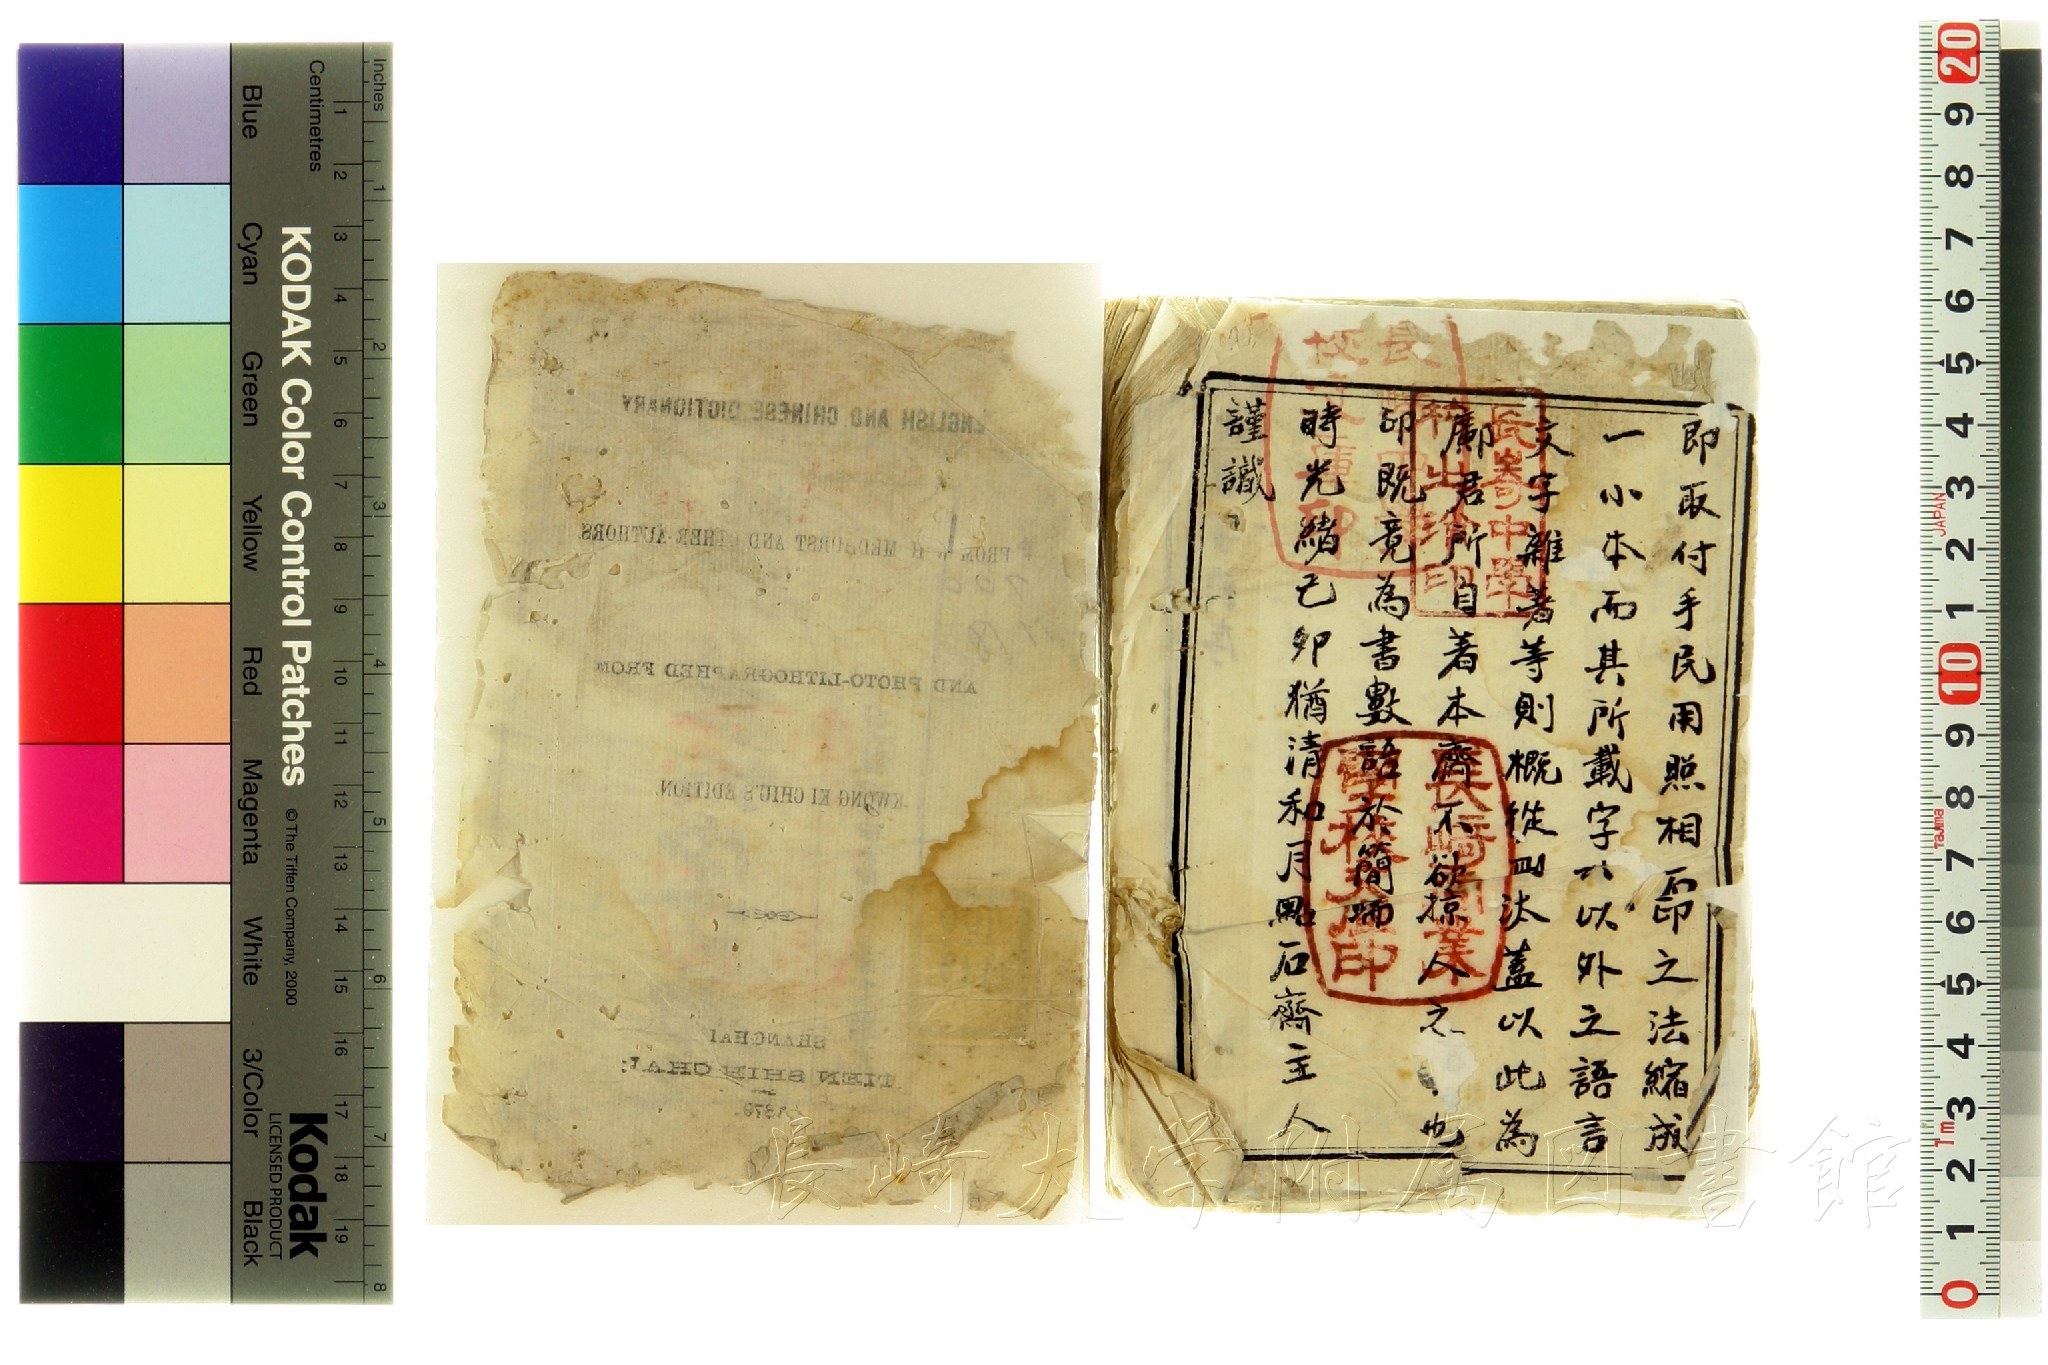 即取付手民用照相石印之法縮成
一小本而其所載字以外之語言
文字雜著等則概從刪汰蓋以此為
鄺君所自著本齋不欲掠人之 也
印既竟為書數語於簡端
時光緒己卯猶清和月點石齋主人
謹識
ENGLISH AND CHINESE DICTIONARY
FROM W. H. MEDHURST AND OTHER AUTHORS.
AND PHOTO-LITHOGRAPHED FROM
KWONG KI CHIU'S EDITION.
SHANGHAI
TIEN SHIH CHAI:
1879.
長崎中學
印
長崎 業
學校 印
長崎大学附属図書館
KODAK Color Control Patches
© The Tiffen Company, 2000
Kodak
LICENSED PRODUCT
Inches
1 2 3 4 5 6 7 8
Centimetres
1 2 3 4 5 6 7 8 9 10 11 12 13 14 15 16 17 18 19
Blue
Cyan
Green
Yellow
Red
Magenta
White
3/Color
Black
20 9 8 7 6 5 4 3 2 1 10 9 8 7 6 5 4 3 2 1 0
JAPAN
Tajima
1m